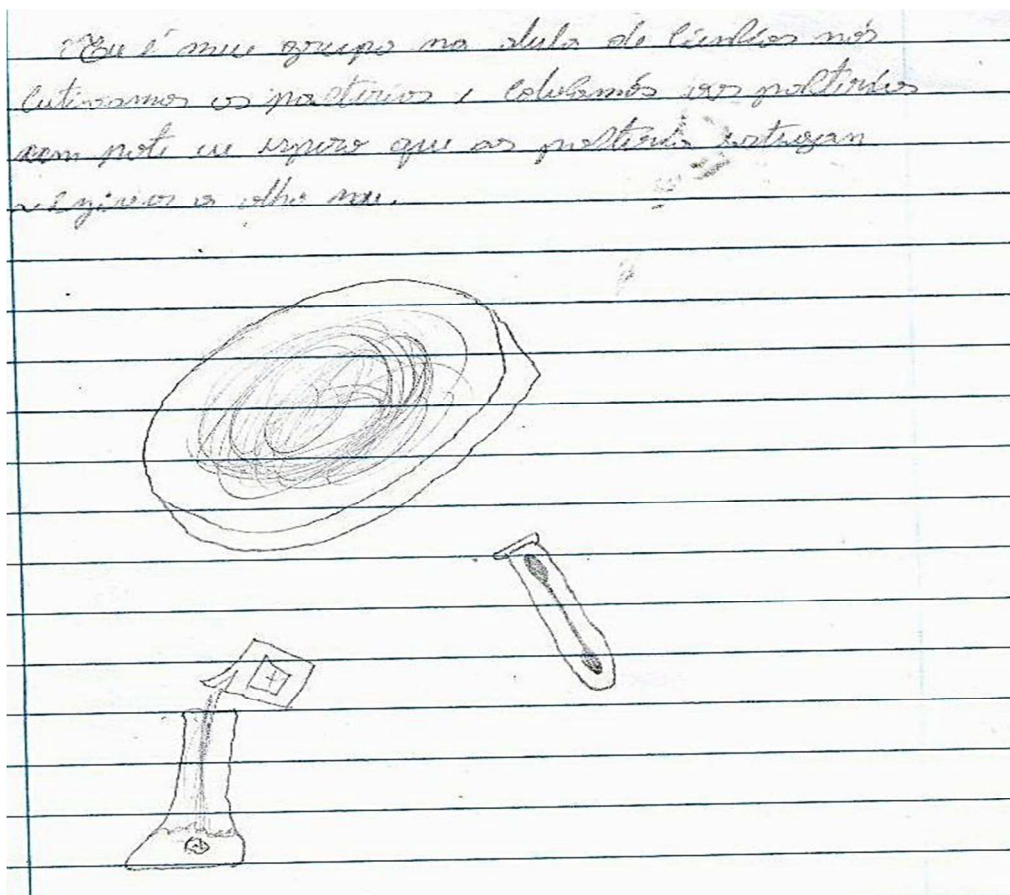 Eu é meu grupo na aula de Ciencias nós
cutivamos as pactérias e colocamos as pactérias
num pote eu espero que as pactéria estejam
vizivos a olho nu.